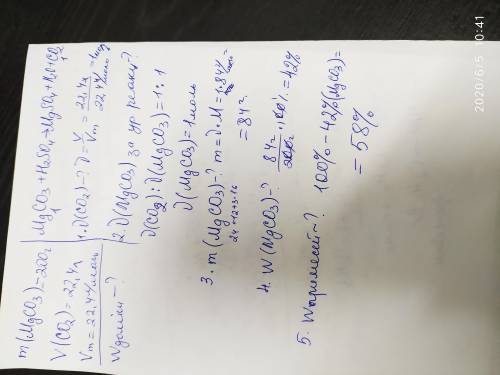 m(MgCO₃)=200г
V(CO₂)=22,4л
Vm=22,4л/моль
Wдоміки-?
MgCO₃+H₂SO₄→MgSO₄+H₂O+CO₂
1. ν(CO₂)-? ν=V/Vm=22,4л/22,4л/моль=1моль
2. ν(MgCO₃) за ур реакції?
ν(CO₂):ν(MgCO₃)=1:1
ν(MgCO₃)=1моль
3. m(MgCO₃)-? m=ν·M=1·84г/моль=
24+12+3·16
=84г
4. W(MgCO₃)-? 84г/200г·100%=42%
5. Wпримесей-? 100%-42%(MgCO₃)=
=58%
2020/6/5 10:41